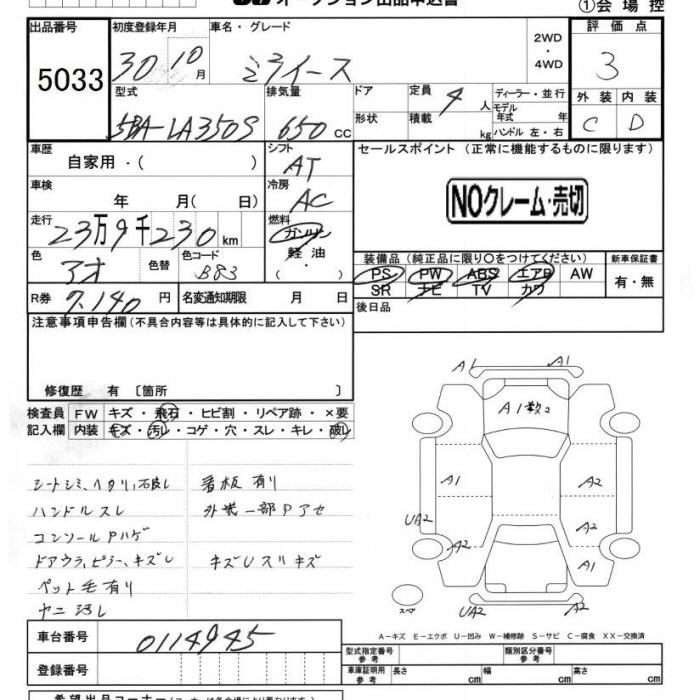 オークション出品申込書
①会場控
出品番号 初度登録年月 車名・グレード 2WD ・ 4WD 評価点
5033 30 10月 ミライース 3
型式 排気量 ドア 定員 4人 ディーラー・並行 外装 内装
5BA-LA350S 650 CC 形状 積載 kg モデル年式 年 ハンドル 左・右 C D
車歴 自家用・( ) シフト AT セールスポイント (正常に機能するものに限ります)
車検 年 月( 日) 冷房 AC NOクレーム・売切
走行 23万9千230km 燃料 ガソリン
軽油
・( )
色 アオ 色替 色コード B83
装備品 (純正品に限り○をつけてください) 新車保証書
PS PW ABS エアB AW 有・無
SR ナビ TV カワ
R券 7,140円 名変通知期限 月 日 後日品
注意事項申告欄 (不具合内容等は具体的に記入して下さい)
修復歴 有 〔箇所 〕
検査員 FW キズ・飛石・ヒビ割・リペア跡・×要
記入欄 内装 キズ・汚レ・コゲ・穴・スレ・キレ・破レ
シートシミ、ヘタリ、 看板有り
ハンドルスレ 外装一部Pアセ
コンソールPハゲ
ドアウラ、ピラー、キズU キズUスリキズ
ペット毛有り
ヤニ汚レ
A1 A1
A1数コ
A1 A2
UA2 A2 A2
A1
スペア UA2 A2
車台番号 0114945
A-キズ E-エクボ U-凹み W-補修跡 S-サビ C-腐食 XX-交換済
型式指定番号 参考 類別区分番号 参考
登録番号 車庫証明用 参考 長さ cm 幅 cm 高さ cm
希望出品コーナー